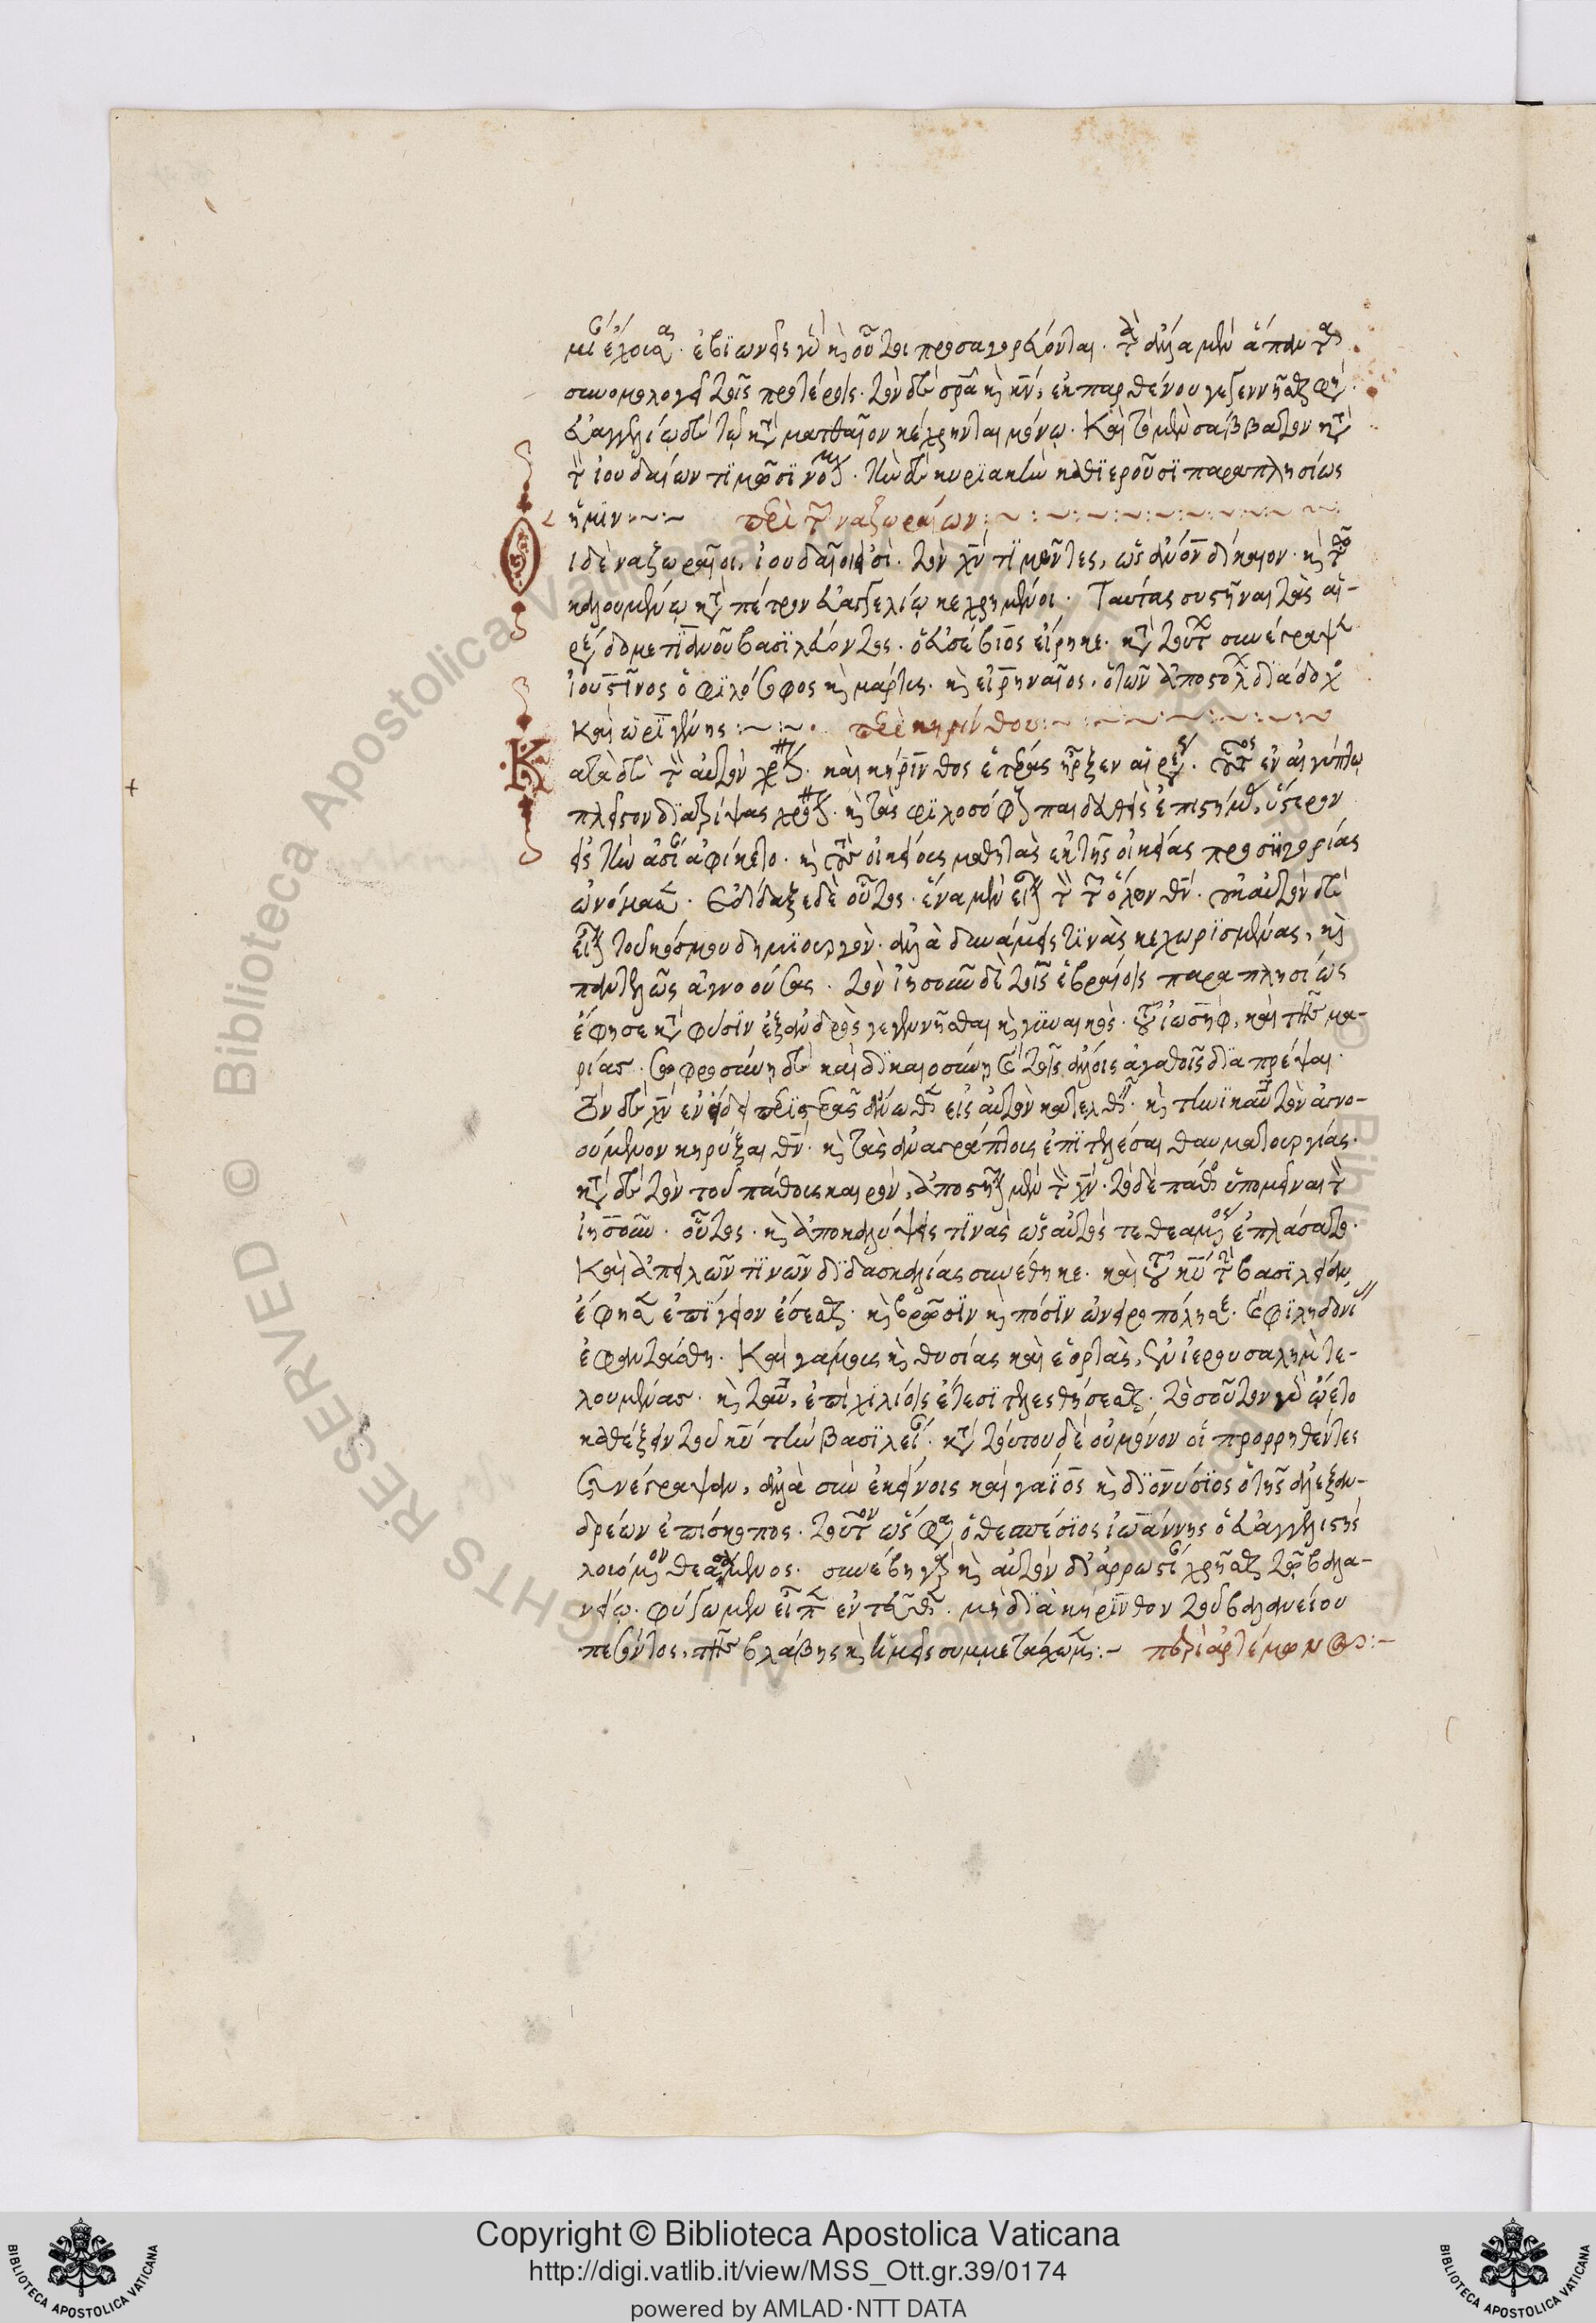 μίαν ἔχουσαν. ἐβιωνεῖς γὰρ καὶ οὗτοι προσαγορεύονται. τὰ ἄλλα μὲν ἅπαντα
συνομολογεῖ τοῖς προτέροις. τὸν δὲ σρα καὶ κν, ἐκ παρθένου γεγεννῆσθαι φησίν.
εὐαγγελίῳ δὲ τῷ κατὰ ματθαῖον κέχρηνται μόνῳ. καὶ τὸ μὲν σάββατον κατὰ
τὸν ἰουδαίων τιμῶσι νόμον. τὴν δὲ κυριακὴν καθιεροῦσι παραπλησίως
ἡμῖν περὶ τῶν ναζωραίων
Οἱ δὲ ναζωραῖοι, ἰουδαῖοί εἰσι. τὸν χν τιμῶντες, ὡς ἄνον δίκαιον. καὶ τῷ
καλουμένῳ κατὰ πέτρον εὐαγγελίῳ κεχρημένοι. Ταύτας συστῆναι τὰς αἱ-
ρέσεις δομετιανοῦ βασιλεύοντος. ὁ εὐσέβιος εἴρηκε. κατὰ τούτων συνέγραψεν
ἰουστῖνος ὁ φιλόσοφος καὶ μάρτυς. καὶ εἰρηναῖος, ὁ τῶν ἀποστόλων διάδοχος
καὶ ὠριγένης περὶ κηρίνθου
Κατὰ δὲ τὸν αὐτὸν χρόνον. καὶ κήρινθος ἑτέρας ἦρξεν αἱρέσεως. οὗτος ἐν αἰγύπτῳ
πλεῖστον διατρίψας χρόνον. καὶ τὰς φιλοσόφους παιδευθεὶς ἐπιστήμας, ὕστερον
εἰς τὴν ἀσίαν ἀφίκετο. καὶ τοὺς οἰκείους μαθητὰς ἐκ τῆς οἰκείας προσηγορίας
ὠνόμασεν. Ἐδίδαξε δὲ οὗτος. ἕνα μὲν εἶναι τὸν τῶν ὅλων θν. οὐκ αὐτὸν δὲ
εἶναι τοῦ κόσμου δημιουργὸν. ἀλλὰ δυνάμεις τινὰς κεχωρισμένας, καὶ
παντελῶς ἀγνοούσας. τὸν ἰησοῦν δὲ τοῖς ἑβραίοις παραπλησίως
ἔφησε κατὰ φύσιν ἐξ ἀνδρὸς γεγεννῆσθαι καὶ γυναικὸς. τοῦ ἰωσὴφ, καὶ τῆς μα-
ρίας. σωφροσύνη δὲ καὶ δικαιοσύνη καὶ τοῖς ἄλλοις ἀγαθοῖς διαπρέψαι.
Τὸν δὲ χν ἐν εἴδει περιστερᾶς ἄνωθεν εἰς αὐτὸν κατελθεῖν. καὶ τηνικαῦτα τὸν ἀγνο-
ούμενον κηρύξαι θν. καὶ τὰς ἀναγράπτους ἐπιτελέσαι θαυματουργίας.
κατὰ δὲ τὸν τοῦ πάθους καιρὸν, ἀποστῆναι μὲν τὸν χν. τὸ δὲ πάθος ὑπομεῖναι τὸν
ἰησοῦν. οὗτος. καὶ ἀποκαλύψεις τινὰς ὡς αὐτὸς τεθεαμένος ἐπλάσατο.
Καὶ ἀπειλῶν τινῶν διδασκαλίας συνέθηκε. καὶ τοῦ κυ τὴν βασιλείαν
ἔφησεν ἐπίγειον ἔσεσθαι. καὶ βρῶσιν καὶ πόσιν ὠνειροπόλησε. καὶ φιληδονίας
ἐφαντάσθη. Καὶ γάμους καὶ θυσίας καὶ ἑορτὰς, ἐν ἱερουσαλὴμ τε-
λουμένας. καὶ ταῦτα, ἐπὶ χιλίοις ἔτεσι τελεσθήσεσθαι. τοσοῦτον γὰρ ᾤετο
καθέξειν τοῦ κυ τὴν βασιλείαν. κατὰ τούτου δὲ οὐ μόνον οἱ προρρηθέντες
συνέγραψαν, ἀλλὰ σὺν ἐκείνοις καὶ γαϊος καὶ διονύσιος ὁ τῆς ἀλεξαν-
δρέων ἐπίσκοπος. τοῦτον ὥς φασιν ὁ θεσπέσιος ἰωάννης ὁ εὐαγγελιστὴς
λουόμενον θεασάμενος. συνέβη γὰρ καὶ αὐτὸν δι' ἀρρωστίαν χρῆσθαι τῷ βαλα-
νείῳ. φύγωμεν εἶπεν ἐντεῦθεν. μὴ διὰ κήρινθον τοῦ βαλανείου
πεσόντος, τῆς βλάβης καὶ ἡμεῖς συμμετάσχωμεν: περὶ ἀρτέμωνος:
Copyright © Biblioteca Apostolica Vaticana
http://digi.vatlib.it/view/MSS_Ott.gr.39/0174
powered by AMLAD·NTT DATA